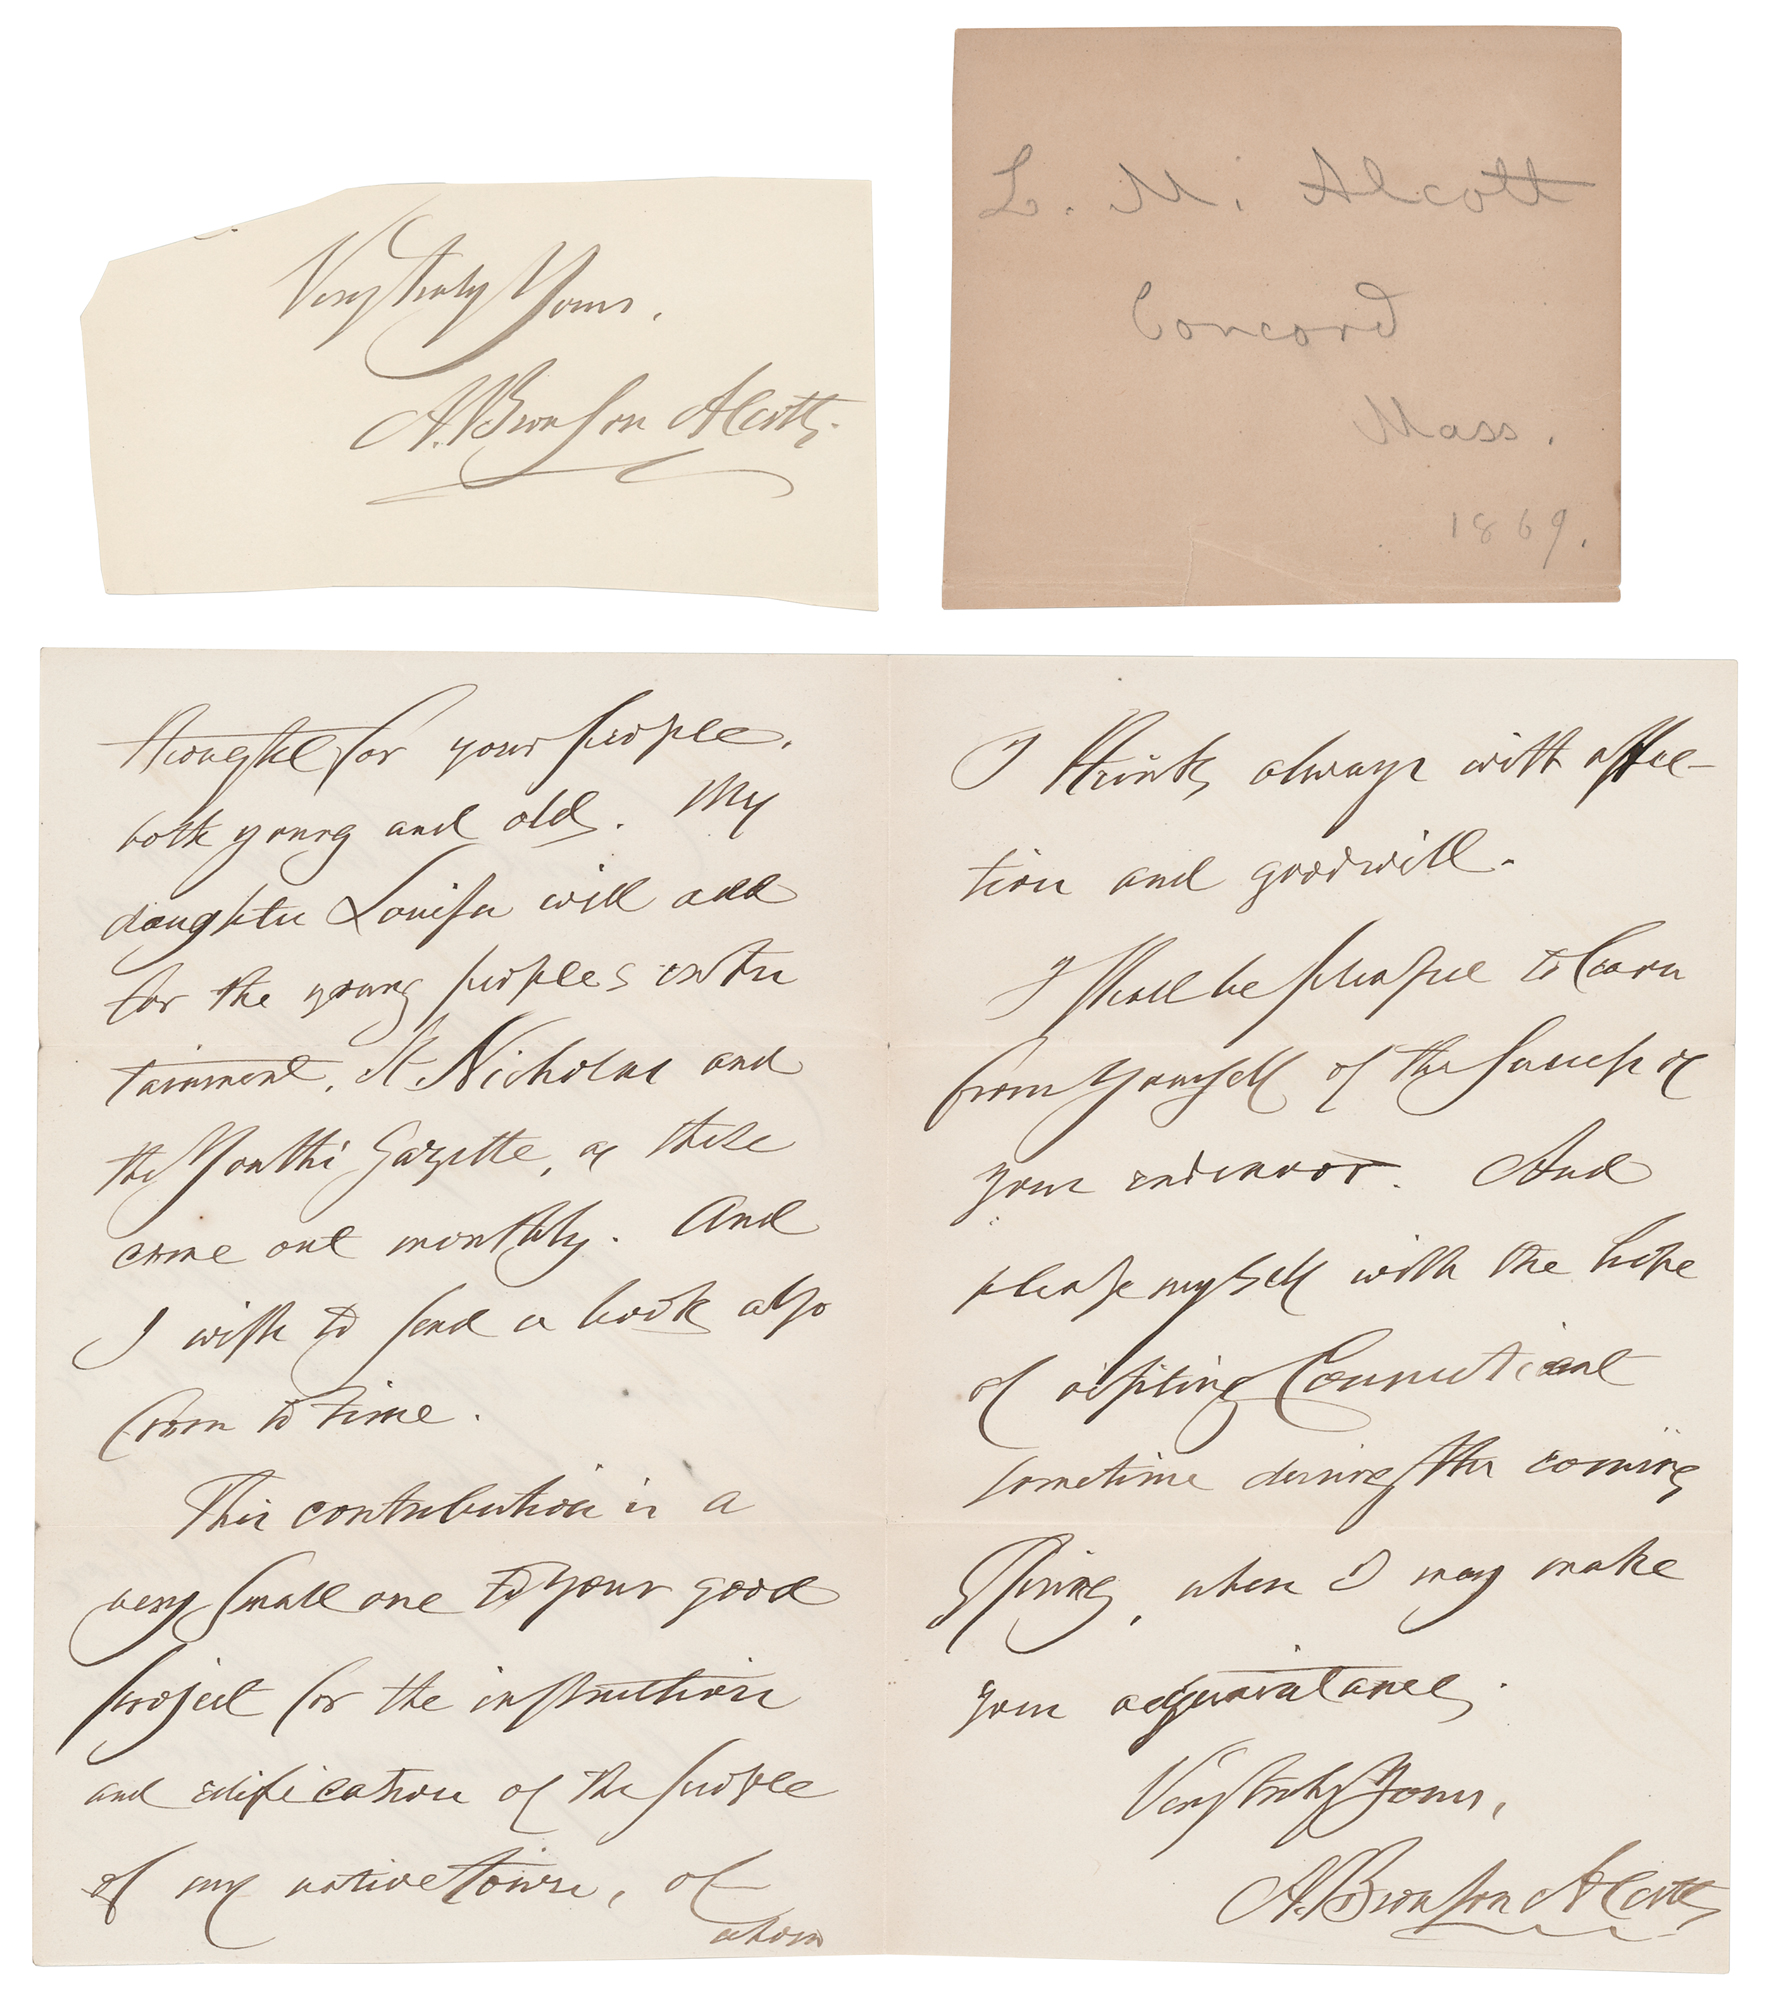 Very truly Yours,
A. Bronson Alcott.
L. M. Alcott
Concord
Mass.
1869.
thought for your people,
both young and old. My
daughter Louisa will add
for the young peoples enter
tainment, St Nicholas and
the Youths Gazette, as these
come out monthly. And
I wish to send a book also
from to time.
This contribution is a
very small one to your good
project for the instruction
and edification of the people
of my native town, of
whom
I think always with affec-
tion and goodwill.
I shall be pleased to learn
from yourself of the success of
your endeavor. And
please myself with the hope
of visiting Connecticut
sometime during the coming
Spring, when I may make
your acquaintance.
Very truly Yours,
A. Bronson Alcott